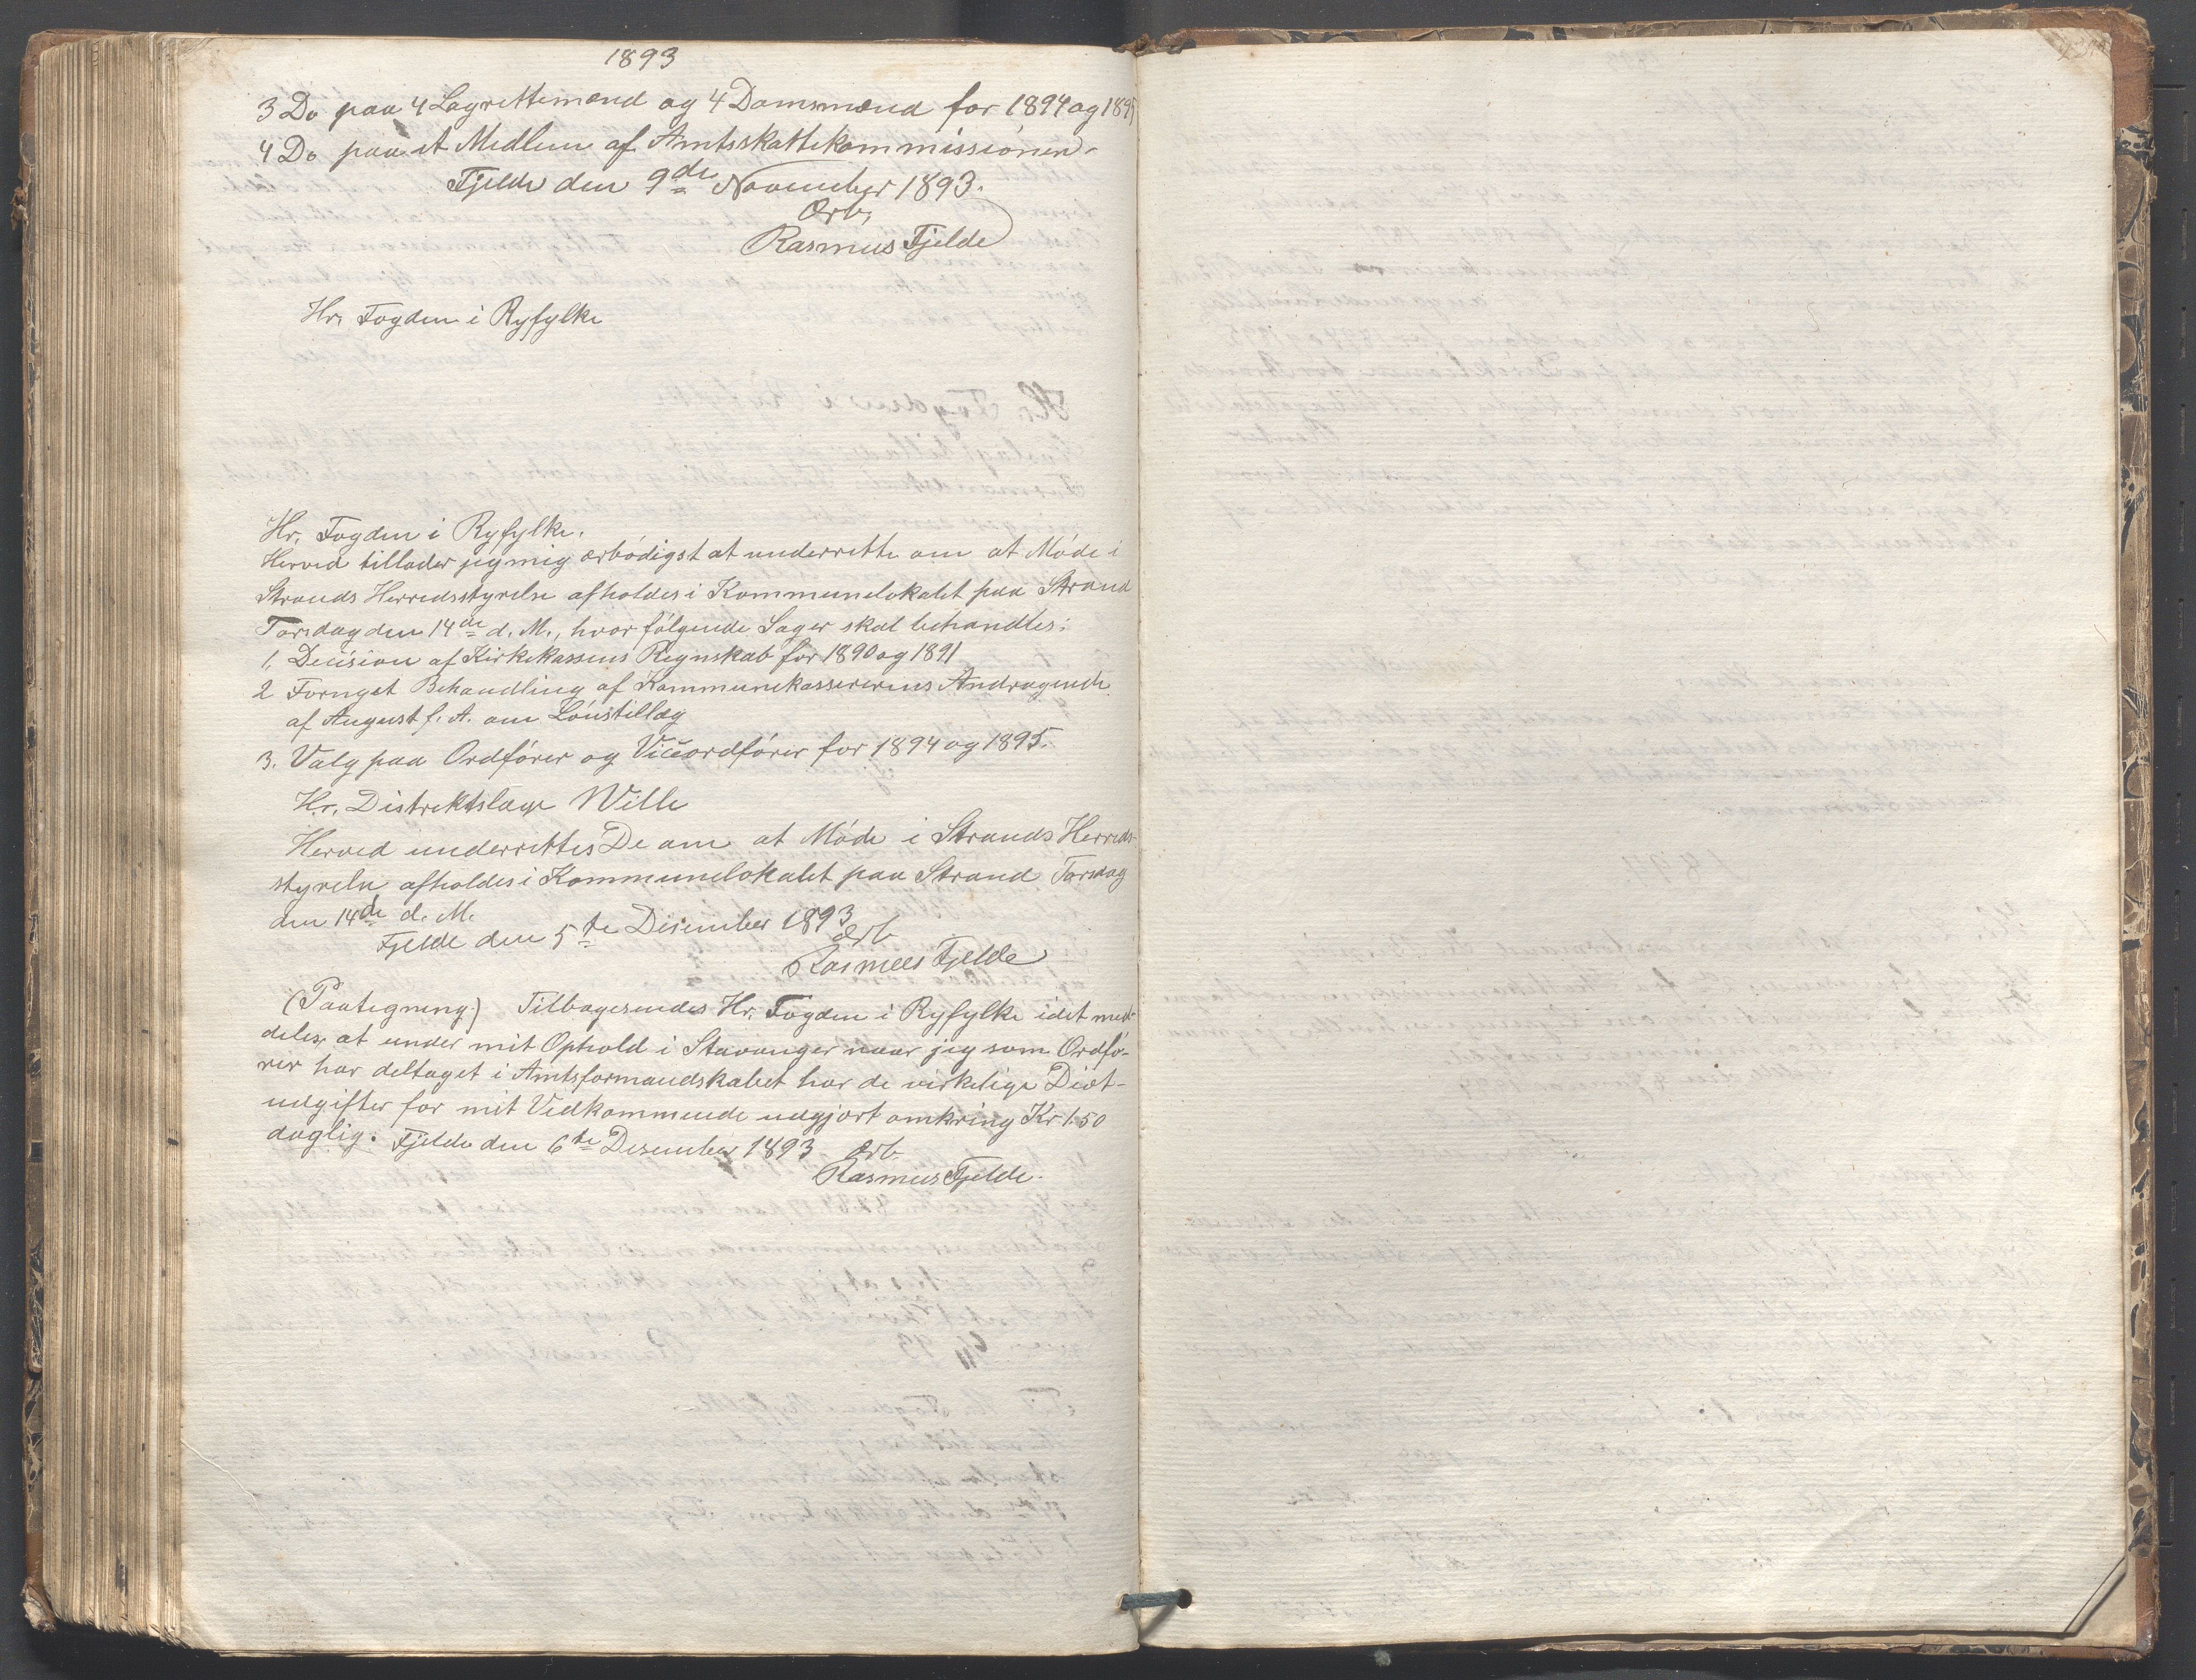 1893
3 Do paa 4 Lagrettemænd og 4 Domsmænd for 1894 og 1895
4 Do paa et Medlem af Amtsskattekommissionen.
Fjelde den 9de November 1893.
Ærb,
Rasmus Fjelde
Hr. Fogden i Ryfylke
Hr. Fogden i Ryfylke.
Herved tillader jeg mig ærbødigst at underrette om at Møde i
Strands Herredsstyrelse afholdes i Kommunelokalet paa Strand
Torsdag den 14de d. M., hvor følgende Sager skal behandles:
1, Decision af Kirkekassens Regnskab for 1890 og 1891
2 Fornyet Behandling af Kommunekassererens Andragende
af August f. A. om Lønstillæg
3. Valg paa Ordfører og Viceordfører for 1894 og 1895.
Hr. Distriktslæge Wille
Herved underrettes De om at Møde i Strands Herreds-
styrelse afholdes i Kommunelokalet paa Strand Torsdag
den 14de d. M.
Fjelde den 5te Desember 1893
Ærb
Rasmus Fjelde
(Paategning) Tilbagesendes Hr. Fogden i Ryfylke idet med-
deles, at under mit Ophold i Stavanger naar jeg som Ordfø-
rer har deltaget i Amtsformandskabet har de virkelige Diæt-
udgifter for mit Vedkommende udgjort omkring Kr 1.50
daglig. Fjelde den 6te Desember 1893 Ærb.
Rasmus Fjelde.